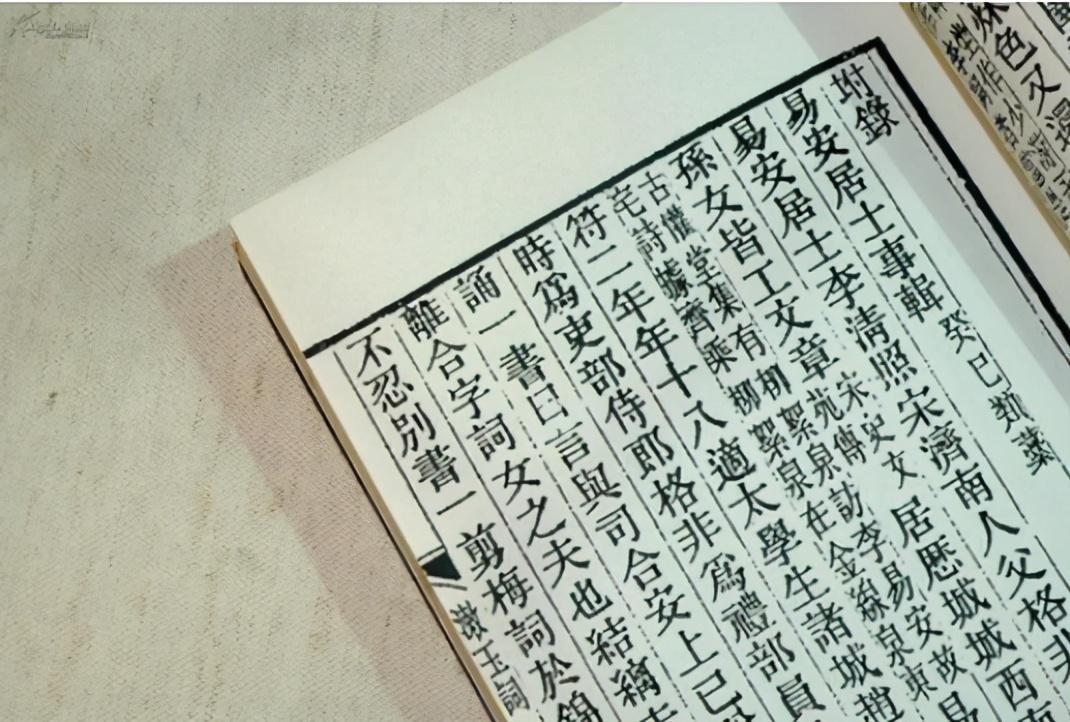 色又
坿錄
易安居士事輯 癸巳類藁
易安居士李清照宋濟南人父格非
孫女皆工文章宋史文苑傳居歷城城西
古懽堂集有柳絮泉訪李易安故
宅詩據齊乘柳絮泉在金線泉東
符二年年十八適太學生諸城趙
時爲吏部侍郎格非爲禮部員
誦一書曰言與司合安上已
離合字詞女之夫也結縭
不忍別書一剪梅詞於錦
漱玉詞